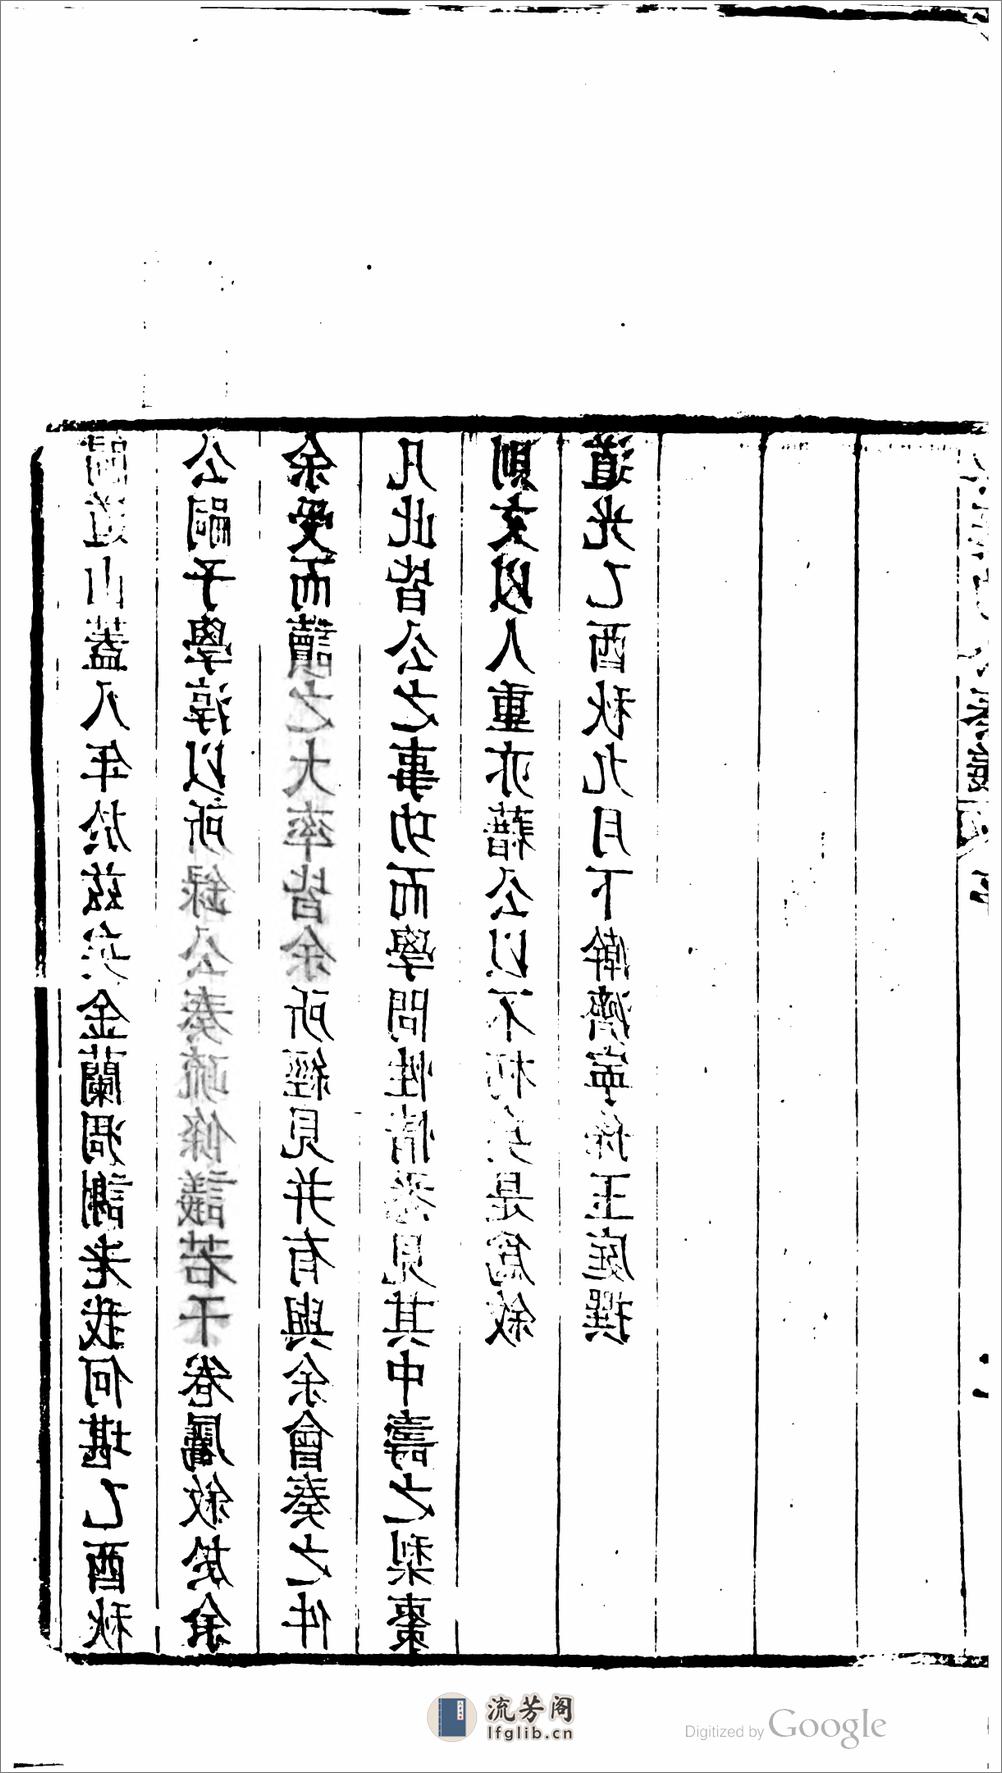 歸道山蓋八年於茲矣金蘭凋謝老我何堪乙酉秋
公嗣子學淳以所録公奏疏條議若干卷屬敘於余
余受而讀之大率皆余所經見并有與余會奏之件
凡此皆公之事功而學問性情悉見其中壽之梨棗
則文以人重亦藉公以不朽矣是爲敘
道光乙酉秋九月下澣濟寧孫玉庭撰
流芳阁
lfglib.cn
Digitized by Google